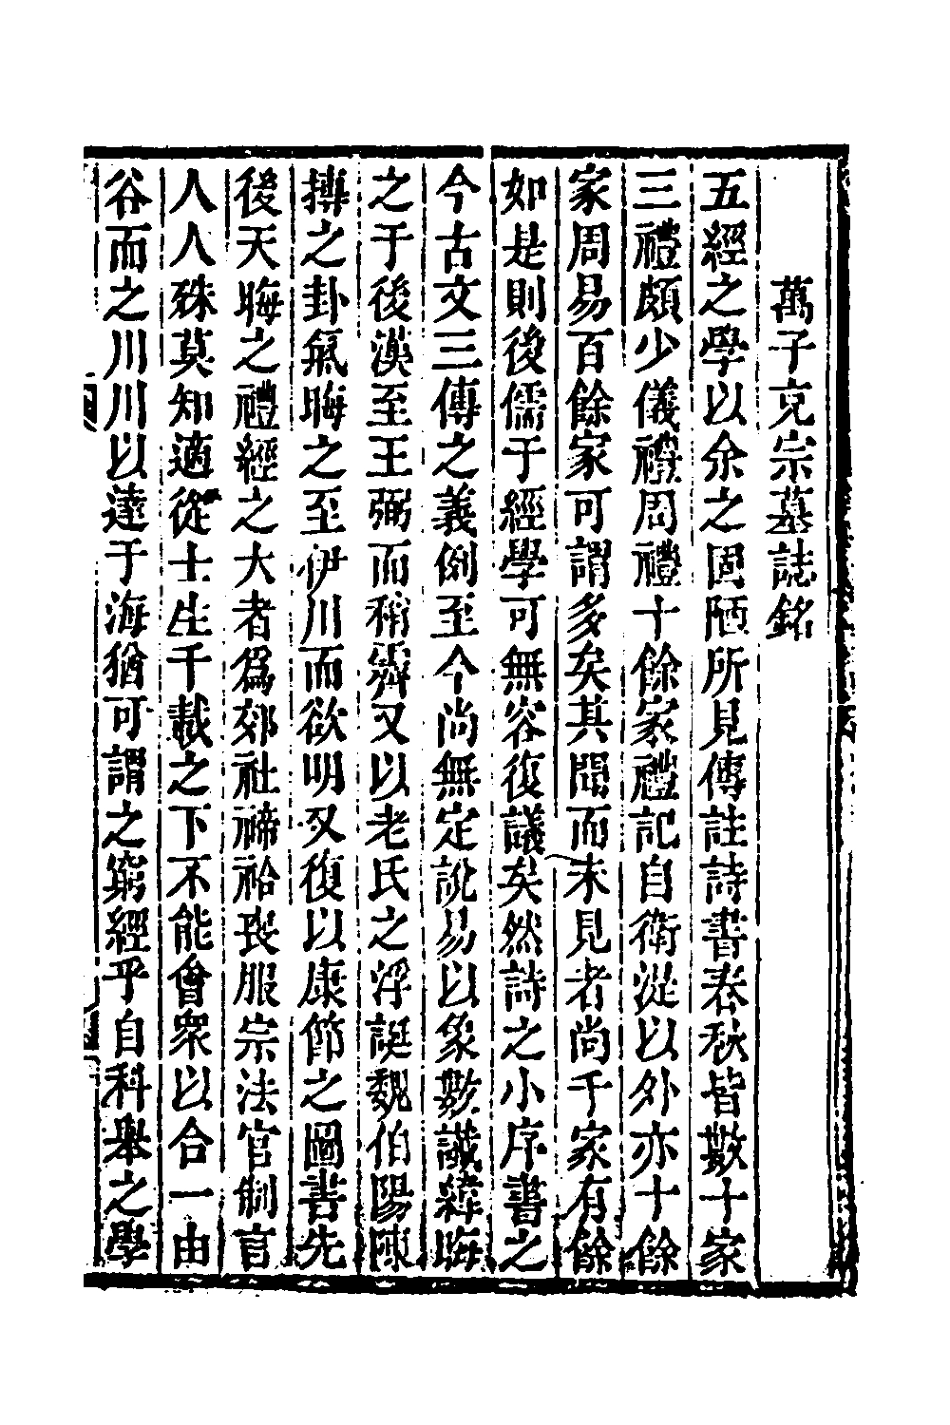 萬子克宗墓誌銘
五經之學以余之固陋所見傳註詩書春秋皆數十家
三禮頗少儀禮周禮十餘家禮記自衛湜以外亦十餘
家周易百餘家可謂多矣其聞而未見者尚千家有餘
如是則後儒于經學可無容復議矣然詩之小序書之
今古文三傳之義例至今尚無定說易以象數讖緯晦
之于後漢至王弼而稍霽又以老氏之浮誕魏伯陽陳
摶之卦氣晦之至伊川而欲明又復以康節之圖書先
後天晦之禮經之大者爲郊社禘祫喪服宗法官制言
人人殊莫知適從士生千載之下不能會衆以合一由
谷而之川川以達于海猶可謂之窮經乎自科舉之學